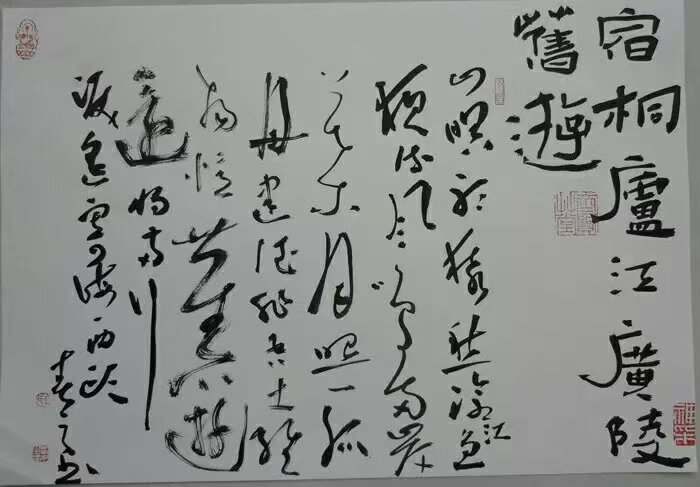 宿桐廬江廣陵
舊遊
山暝聽猿愁滄江急
夜流風鳴兩岸
葉月照一孤
舟建德非吾土維
揚憶舊遊
還將兩行
淚遙寄海西頭
書